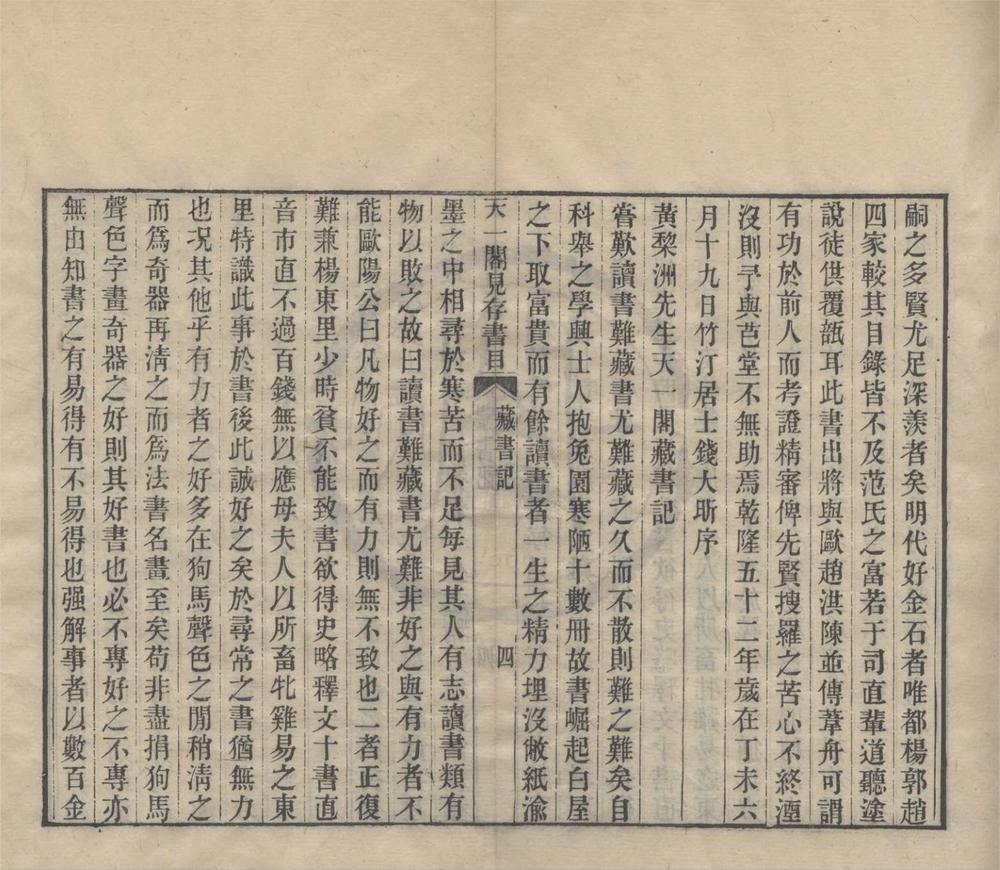 嗣之多賢尤足深羨者矣明代好金石者唯都楊郭趙
四家較其目錄皆不及范氏之富若于司直輩道聽塗
說徒供覆瓿耳此書出將與歐趙洪陳並傳葦舟可謂
有功於前人而考證精審俾先賢搜羅之苦心不終湮
沒則予與芑堂不無助焉乾隆五十二年歲在丁未六
月十九日竹汀居士錢大昕序
黃黎洲先生天一閣藏書記
嘗歎讀書難藏書尤難藏之久而不散則難之難矣自
科舉之學興士人抱兔園寒陋十數冊故書崛起白屋
之下取富貴而有餘讀書者一生之精力埋沒敝紙渝
天一閣見存書目
藏書記
四
墨之中相尋於寒苦而不足每見其人有志讀書類有
物以敗之故曰讀書難藏書尤難非好之與有力者不
能歐陽公曰凡物好之而有力則無不致也二者正復
難兼楊東里少時貧不能致書欲得史略釋文十書直
音市直不過百錢無以應母夫人以所畜牝雞易之東
里特識此事於書後此誠好之矣於尋常之書猶無力
也况其他乎有力者之好多在狗馬聲色之閒稍清之
而爲奇器再清之而爲法書名畫至矣苟非盡捐狗馬
聲色字畫奇器之好則其好書也必不專好之不專亦
無由知書之有易得有不易得也强解事者以數百金